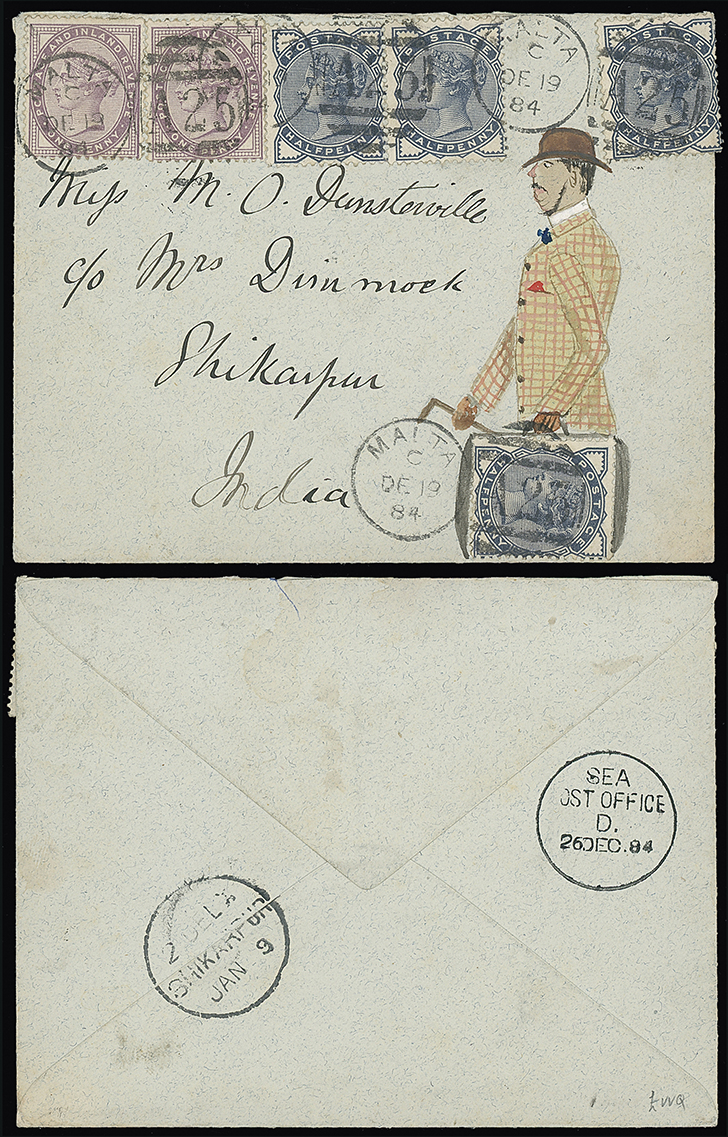 POSTAGE AND INLAND REVENUE
ONE PENNY
POSTAGE AND INLAND REVENUE
ONE PENNY
POSTAGE
HALFPENNY
POSTAGE
HALFPENNY
POSTAGE
HALFPENNY
MALTA
C
DE 19
84
A25
MALTA
C
DE 19
84
A25
Miss M. O. Dunsterville
c/o Mrs Dimmock
Shikarpur
India
MALTA
C
DE 19
84
POSTAGE
HALFPENNY
SEA
POST OFFICE
D.
26 DEC. 84
2 DELY
SHIKARPUR
JAN 9